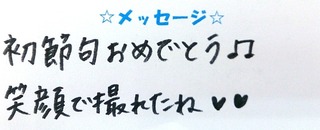 ☆メッセージ☆
初節句おめでとう♫
笑顔で撮れたね♥♥